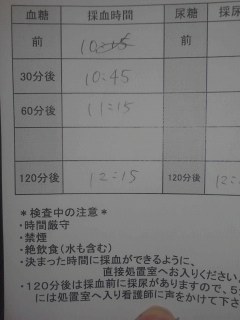 血糖 採血時間 尿糖 採尿
前 10:15 前
30分後 10:45
60分後 11:15
120分後 12:15 120分後 12:
＊検査中の注意＊
・時間厳守
・禁煙
・絶飲食(水も含む)
・決まった時間に採血ができるように、
直接処置室へお入りください
・120分後は採血前に採尿がありますので、5分
には処置室へ入り看護師に声をかけて下さ